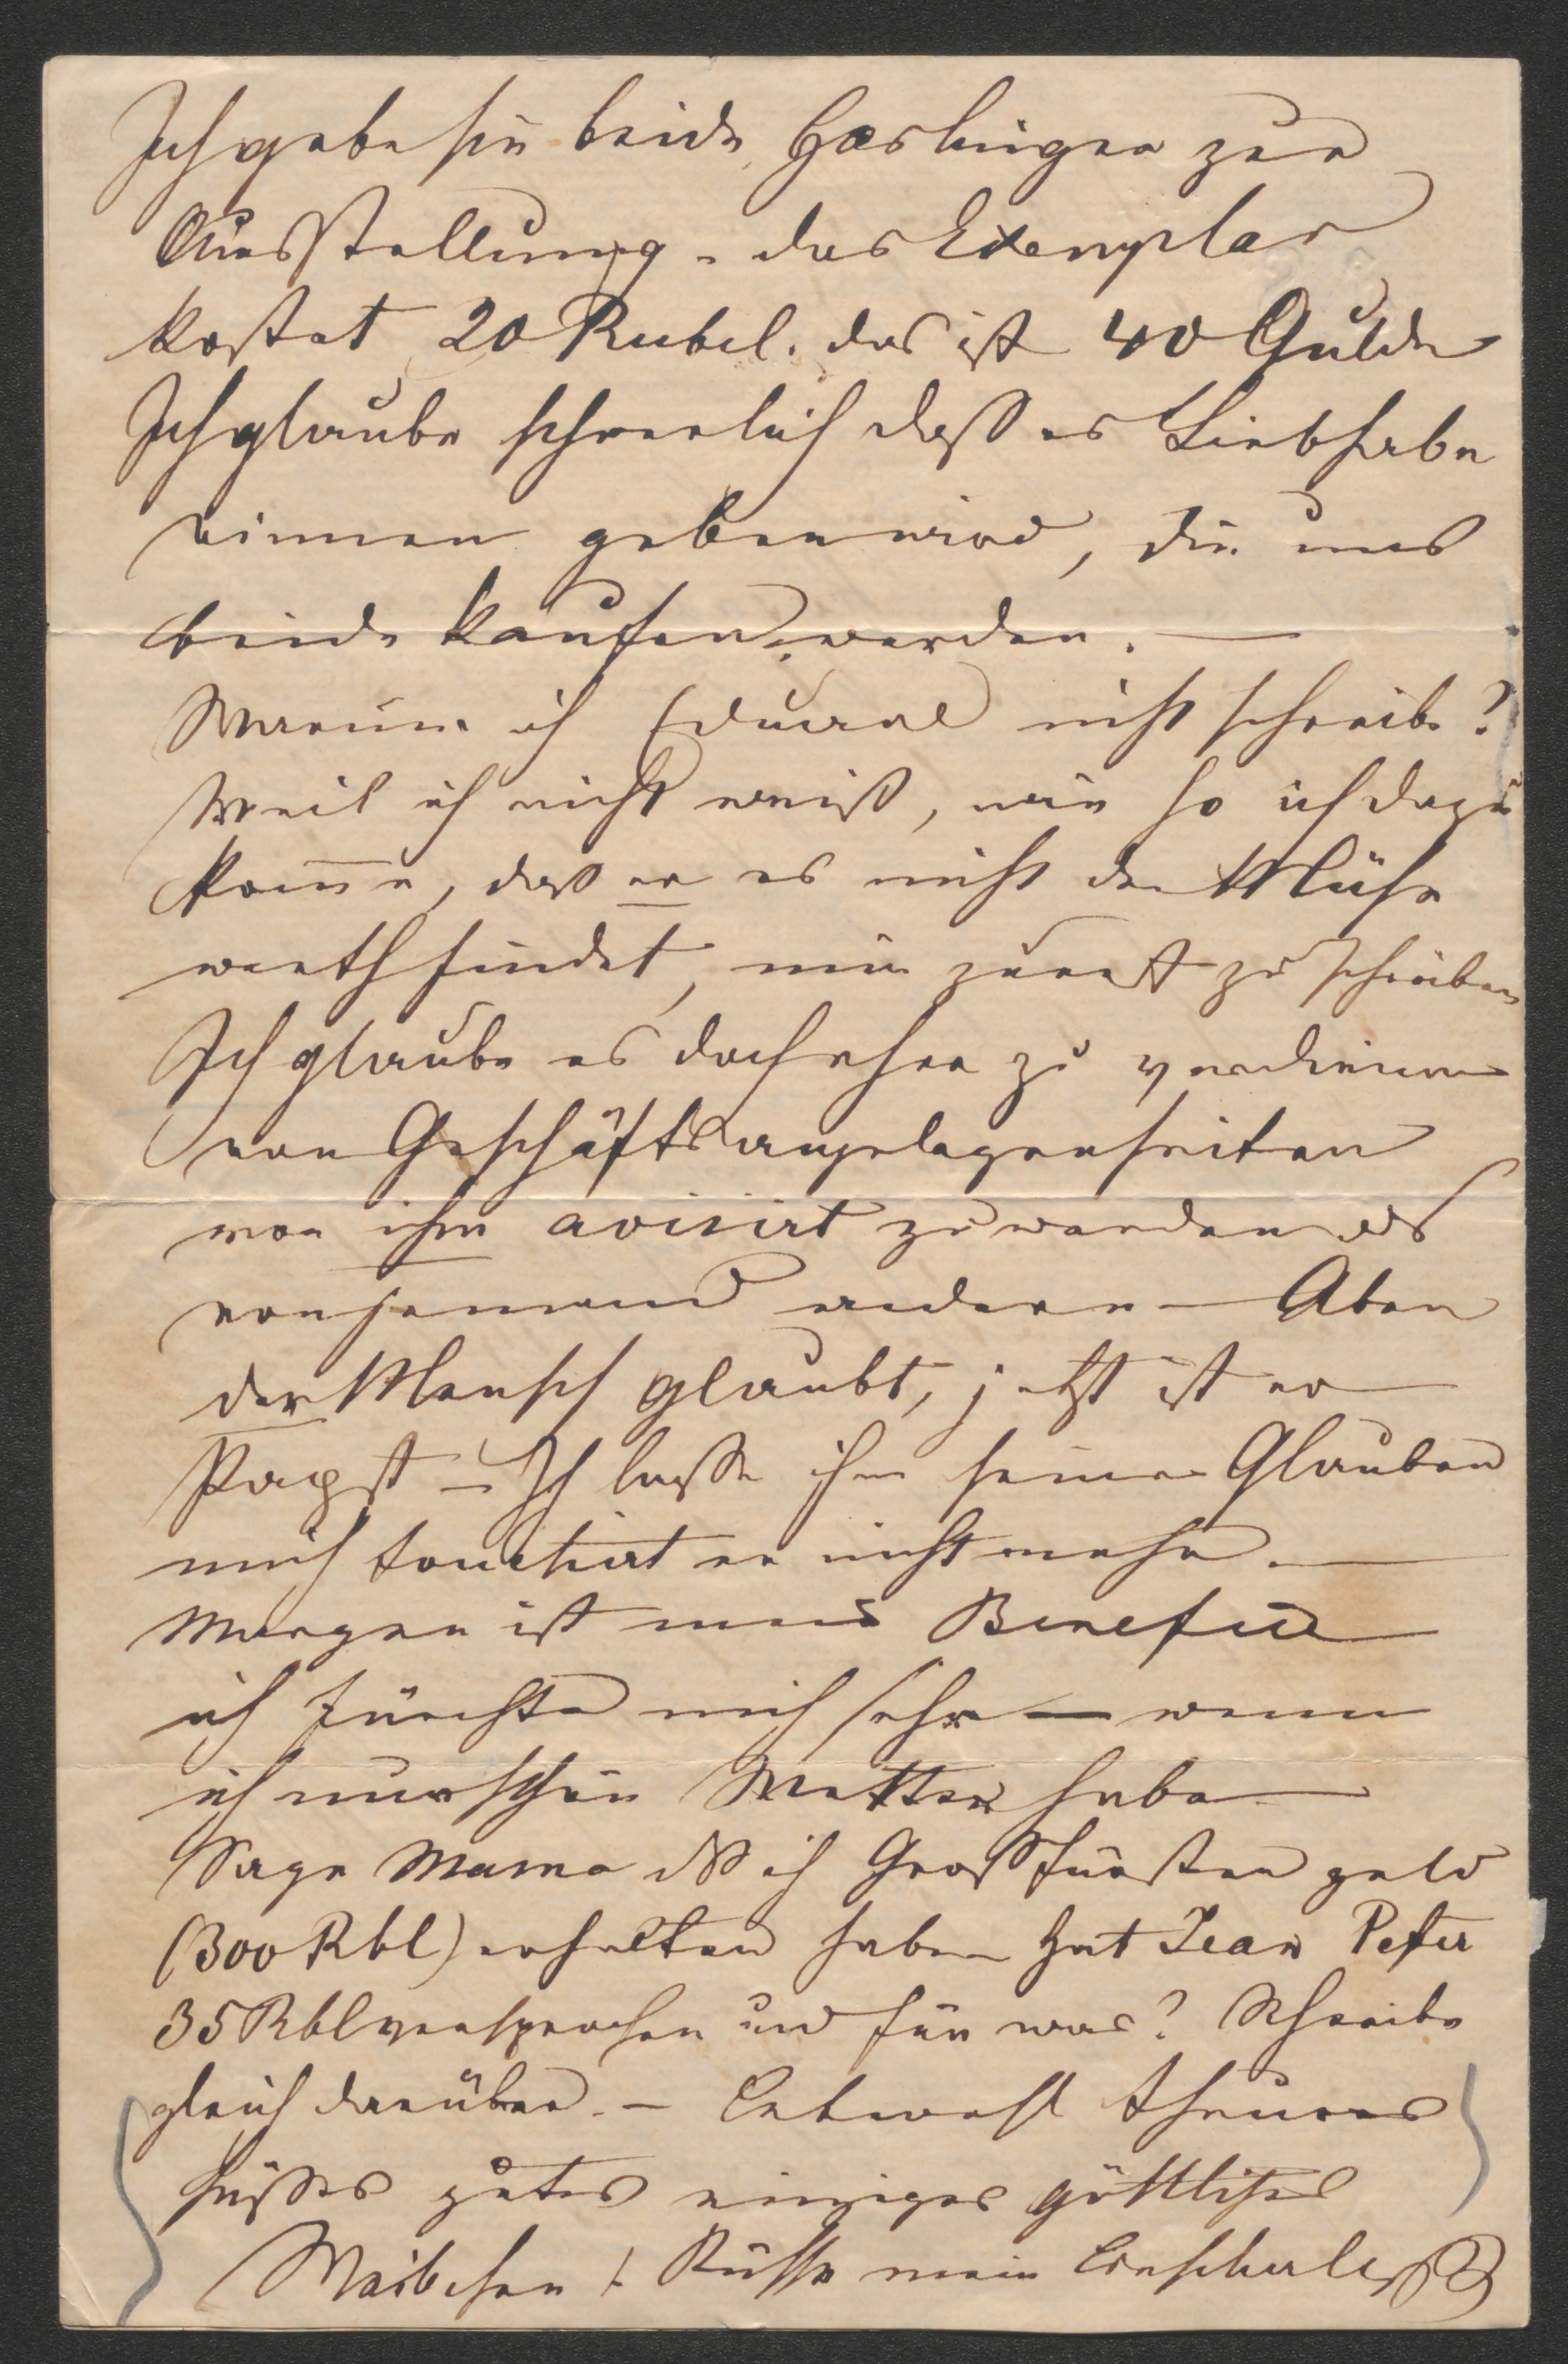 Ich gebe sie beide Haslinger zur
Ausstellung - das Exemplar
kostet 20 Rubel. das ist 40 Gulden
Ich glaube schwerlich daß es Liebhabe
rinnen geben wird, die uns
beide kaufen werden. —
Warum ich Eduard nicht schreibe?
Weil ich nicht weiß, wie so ich dazu
kom̅e, daß er es nicht der Mühe
werth findet, mir zuerst zu schreiben
Ich glaube es doch eher zu verdienen
von Geschäftsangelegenheiten
von ihm avisirt zu werden als
von jemand andern — Aber
der Mensch glaubt, jetzt ist er
Papst — Ich lasse ihm seinen Glauben
mich touchirt er nicht mehr. —
Morgen ist mein Benefice
ich fürchte mich sehr — wenn
ich nur schön Wetter habe —
Sage Mama daß ich Großfürsten geld
(300 Rbl) erhalten habe hat Jean Peter
35 Rbl versprochen und für was? Schreibe
gleich darüber. — Lebwohl theures
süßes gutes einziges göttliches
Weibchen! Küsse mein